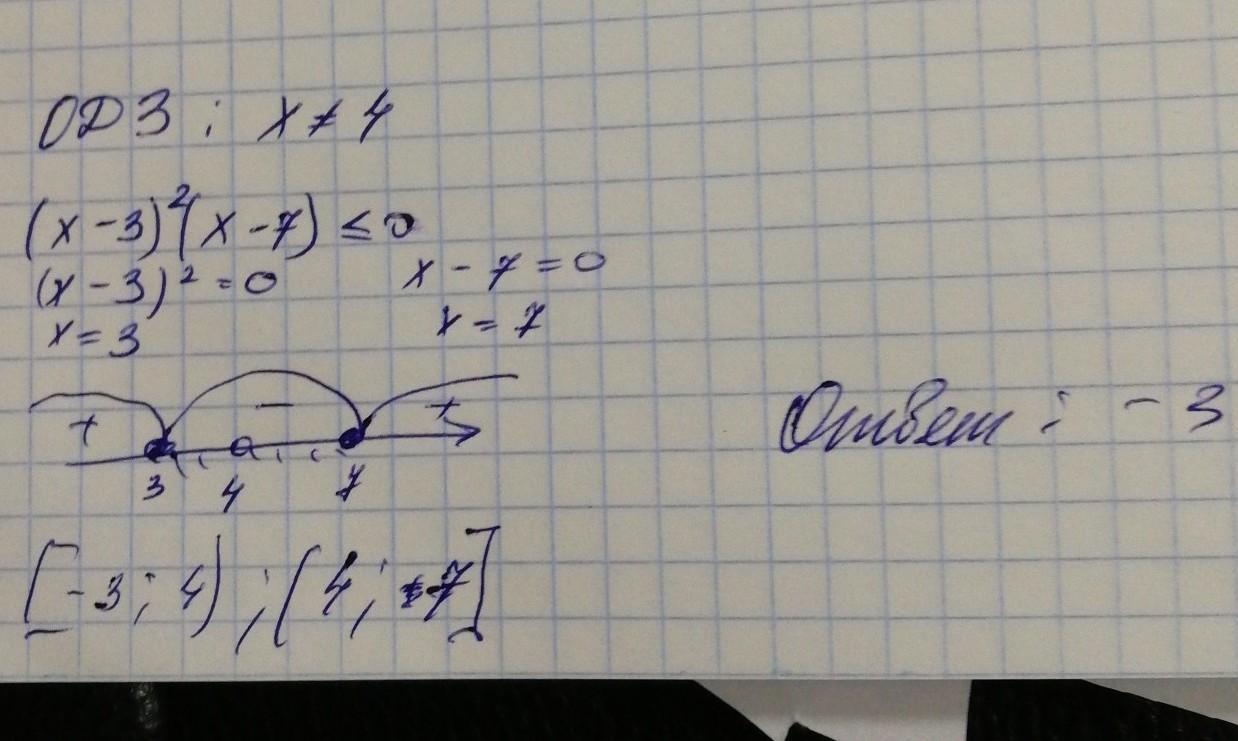 ОДЗ : x ≠ 4
(x - 3)²(x - 7) ≤ 0
(x - 3)² = 0 x - 7 = 0
x = 3 x = 7
+ - +
3 4 7
Ответ : - 3
[-3; 4) ; (4; 7]